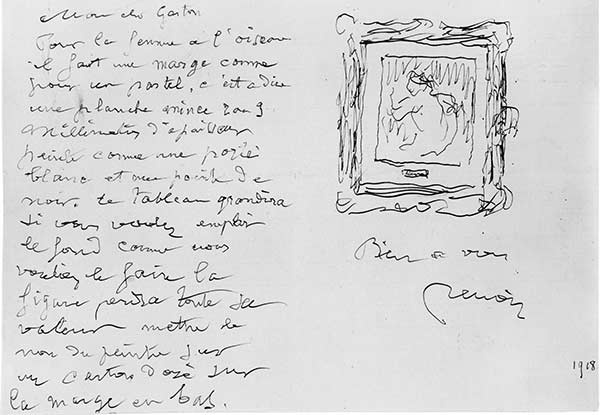 Mon cher Gaston
Pour la femme a l'oiseau
il faut une marge comme
pour un pastel, c'est a dire
une planche mince 2 ou 3
millimetres d'epaisseur
peinte comme une
blanc et une pointe de
noir. le tableau grandira
Si vous voulez emplir
le fond comme vous
vouliez le faire la
figure perdra toute sa
valeur mettre le
nom du peintre sur
un carton doré sur
la marge en bas.
Bien a vous
Renoir
1918